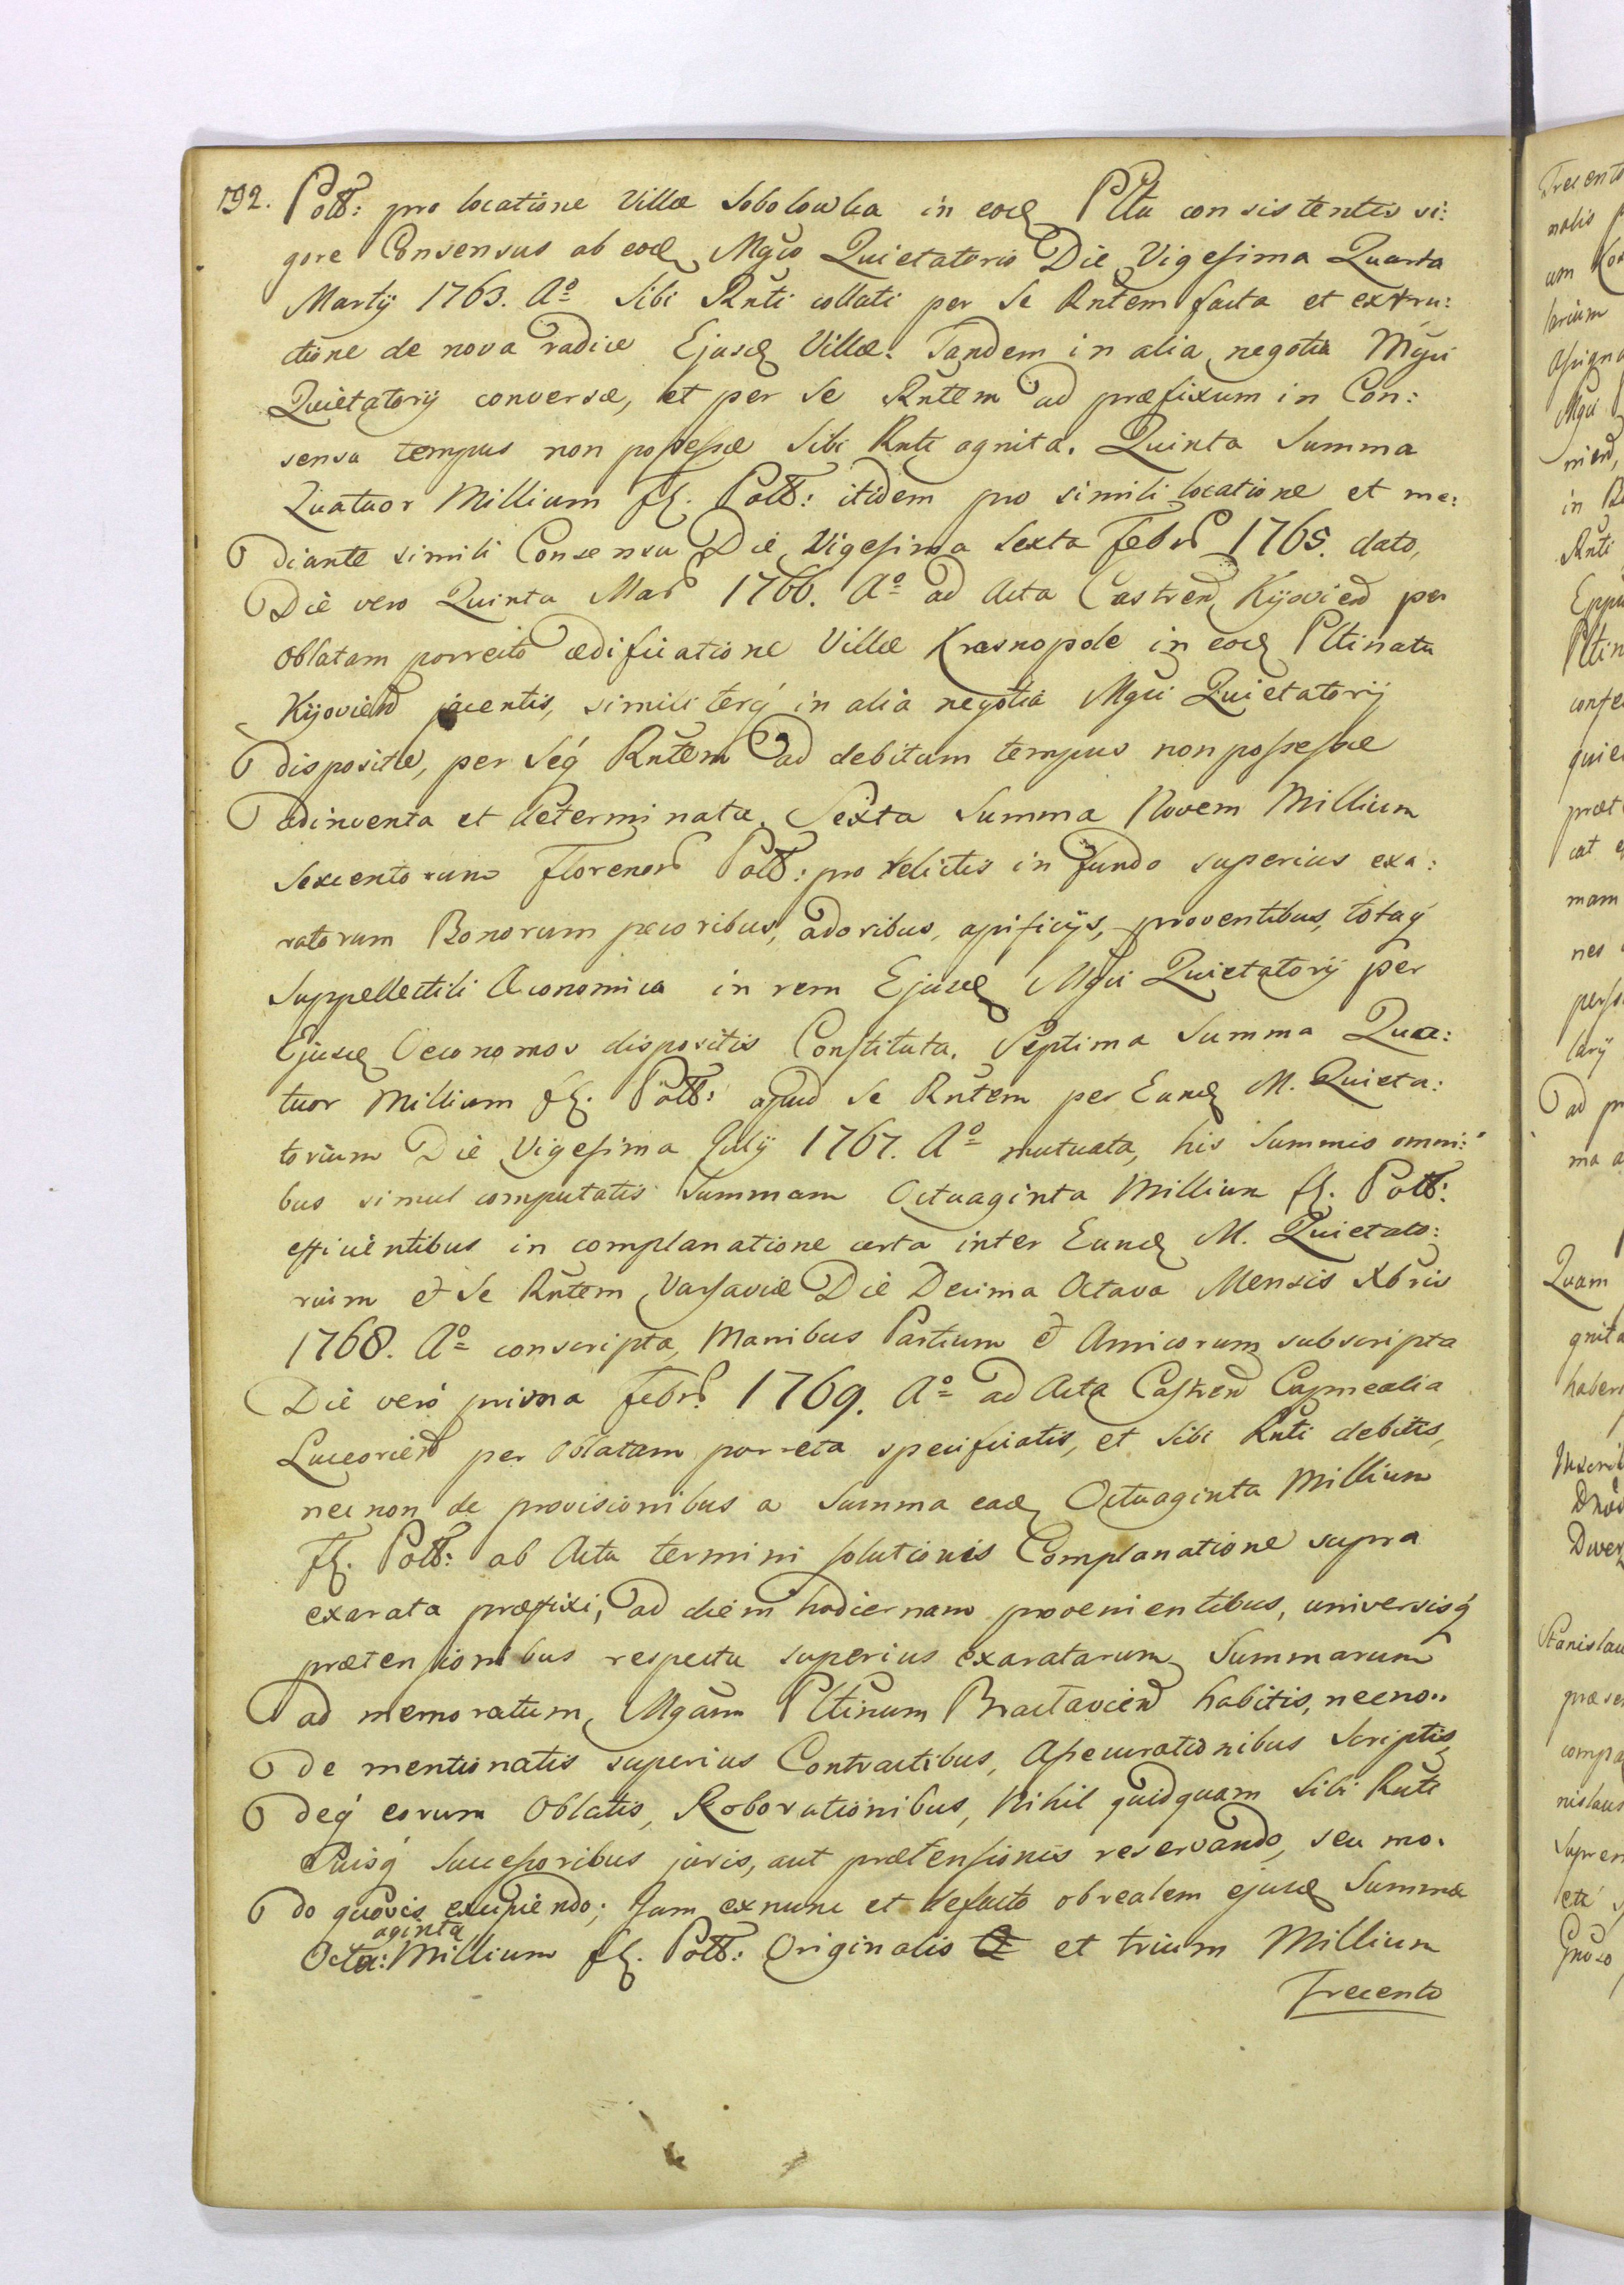 192. Poll: pro locatione Villæ Sobolowka in eod Pltu consistentis vi:
gore Consensus ab eod Mgco Quietatorio Die Vigesima Quarta
Martij 1763. Aº Sibi Rnti collati per Se Rntem facta et extru:
ctione de nova radice Ejusd Villæ. Tandem in alia negotia Mgci
Quietatorij conversæ, et per Se Rntem ad præfixum in Con:
sensu tempus non possessæ Sibi Rnti agnita. Quinta Summa
Quatuor Millium fl. Poll: itidem pro simili locatione et me:
diante simili Consensu Die Vigesima Sexta Febr 1765. dato,
Die vero Quinta Mar 1766. Aº ad Acta Castren Kijovien per
Oblatam porrecto ædificatione Villæ Krasnopole in eod Pltinatu
Kijovien jacentis, similiterq in alia negotia Mgci Quietatorij
dispositæ, per Seq Rntem ad debitum tempus non possessæ
adinventa et determinata. Sexta Summa Novem Millium
Sexcentorum florenor Poll: pro relictis in fundo superius exa:
ratorum Bonorum pecoribus, adoribus, apificijs, proventibus, totaq
Suppellectili Œconomica in rem Ejusd Mgci Quietatorij per
Ejusd Oeconomos dispositis Constituta. Septima Summa Qua:
tuor Millium fl. Poll: apud Se Rntem per Eund M. Quieta:
torium Die Vigesima Julij 1767. Aº mutuata, his Summis omni:
bus simul computatis Summam Octuaginta Millium fl. Poll:
efficientibus in complanatione certa inter Eund M. Quietato:
rium et Se Rntem Varsaviæ Die Decima Octava Mensis Xbris
1768. Aº conscripta, Manibus Partium et Amicorum subscripta
Die vero prima Febr. 1769. Aº ad Acta Castren Capnealia
Luceorien per Oblatam porrecta specificatis, et Sibi Rnti debitis,
nec non de provisionibus a Summa ead Octuaginta Millium
fl. Poll: ab Actu termini solutionis Complanatione supra
exarata præfixi, ad diem hodiernam provenientibus, universisq
prætensionibus respectu superius exaratarum Summarum
ad memoratum Mgcum Pltinum Bractavien habitis, necno..
de mentionatis superius Contractibus, Assecurationibus Scriptis
deq eorum Oblatis, Roborationibus, Nihil quidquam Sibi Rnti
Suisq Successoribus juris, aut prætensionis reservando, seu mo.
do quovis excipiendo; Jam exnunc et defacto ob realem ejusd Summæ
aginta
Octu: Millium fl. Poll: Originalis et trium Millium
Trecento